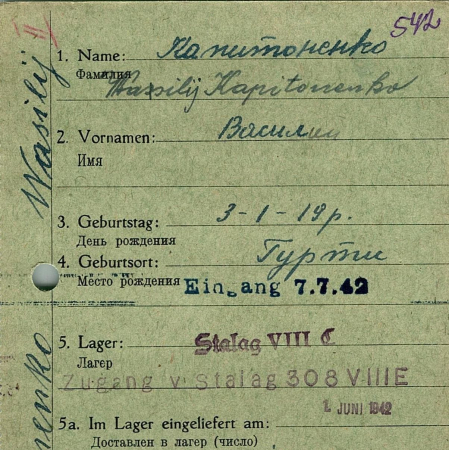 542
II
1. Name: Капитоненко
Фамилия
Wassilij Kapitonenko
2. Vornamen: Василий
Имя
3. Geburtstag: 3-1-19р.
День рождения
4. Geburtsort: Гурти
Место рождения Eingang 7.7.42
5. Lager: Stalag VIII C
Лагер
Zugang v. Stalag 308 VIII E
JUNI 1942
5a. Im Lager eingeliefert am:
Доставлен в лагер (число)
Wasilij
nenko